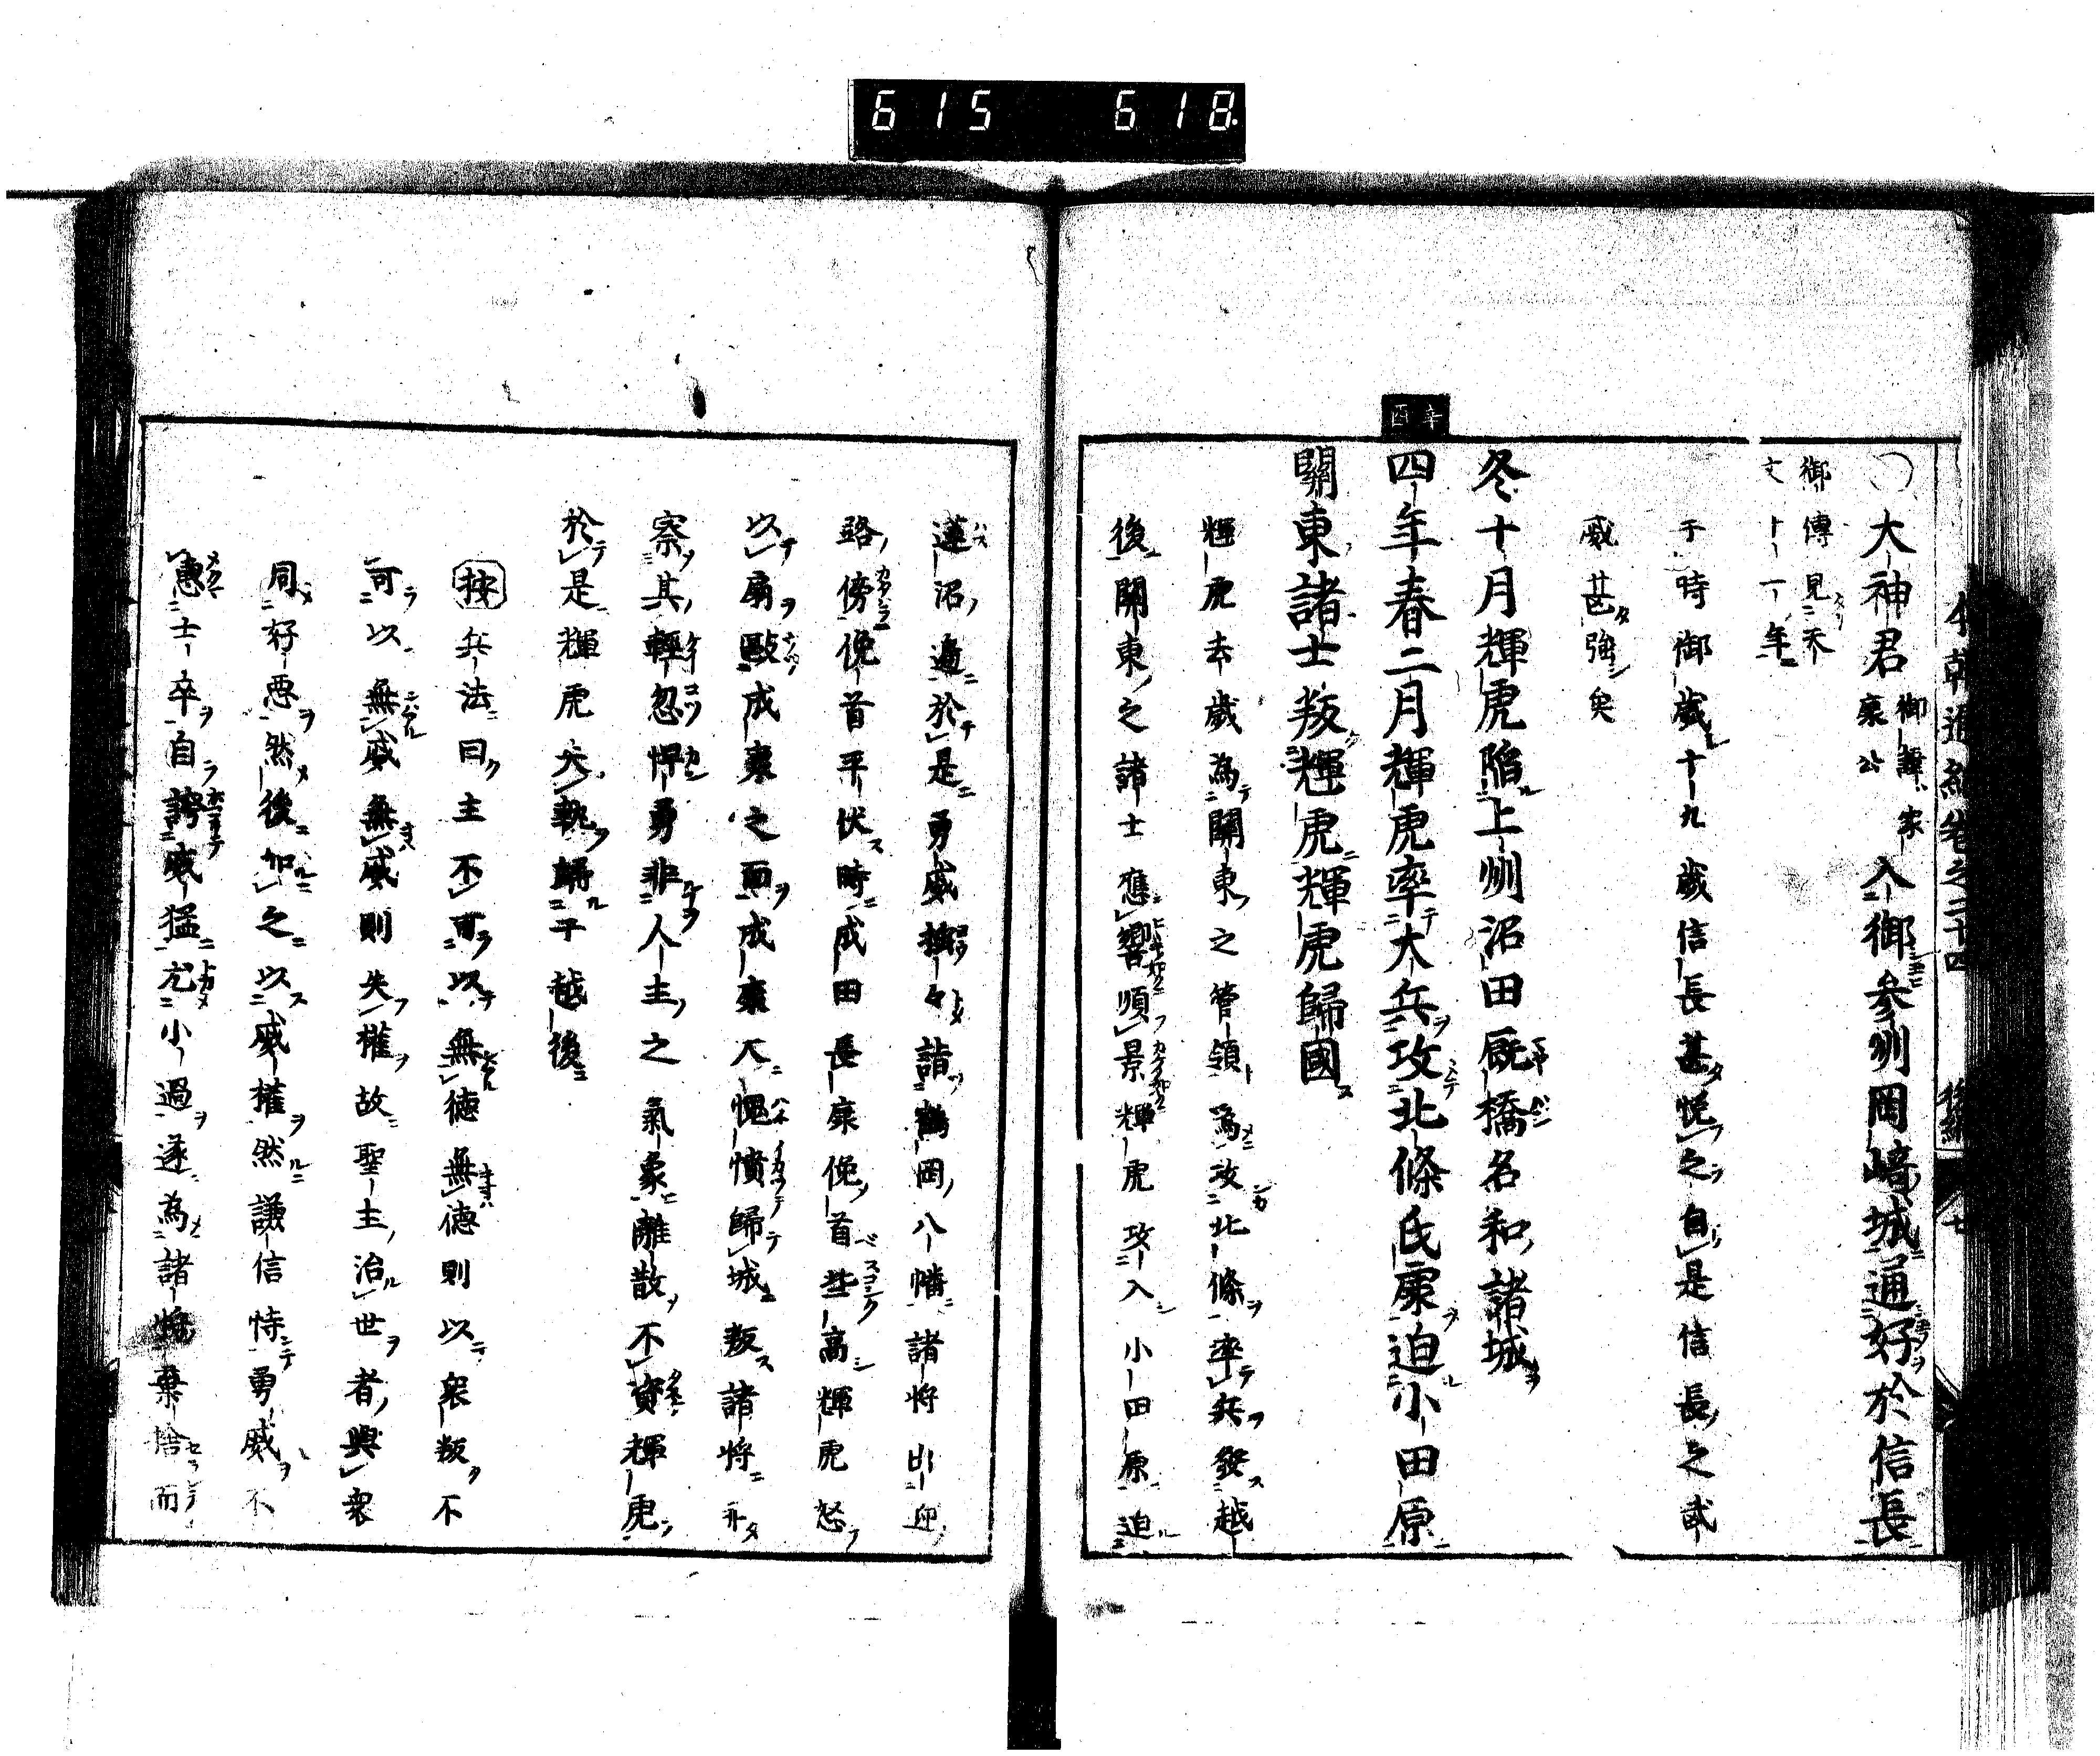 615 618
○大神君御諱家康公入御參州岡﨑城通好於信長
御傳見天
文十一年
于時御歲十九歲信長甚悅之自是信長之武
威甚強矣
冬十月輝虎陷上州沼田厩橋名和諸城
辛酉
四年春二月輝虎率大兵攻北條氏康迫小田原
關東諸士叛輝虎輝虎歸國
輝虎去歲為關東之管領為攻北條率兵發越
後關東之諸士應響順景輝虎攻入小田原迫
蓮沼邊於是勇威揚々詣鶴岡八幡諸將出迎
路傍俛首平伏時成田長康俛首些高輝虎怒
以扇毆成東之面成東大愧憤歸城叛諸將亦
察其輕忽悍勇非人主之氣象離散不資輝虎
於是輝虎失執歸于越後
按兵法曰主不可以無德無德則以衆叛不
可以無威無威則失權故聖主治世者與衆
同好惡然後加之以威權然謙信恃勇威不
惠士卒自誇威猛尤小過遂為諸將棄捨而